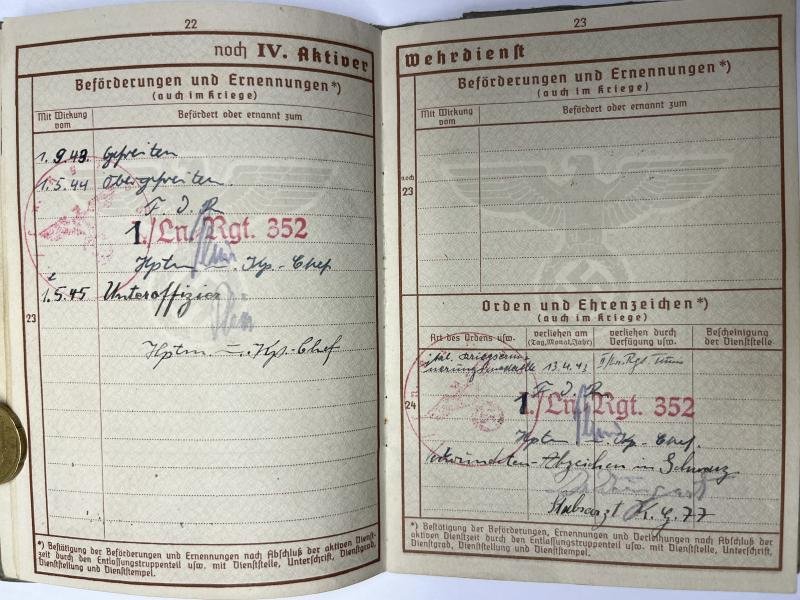 22
noch IV. Aktiver
Beförderungen und Ernennungen*)
(auch im Kriege)
Mit Wirkung vom
Befördert oder ernannt zum
1.9.43. Gefreiten
1.5.44 Obergefreiten.
F. d. R.
1./Ln.-Rgt. 352
Hptm. u. Kp.-Chef
1.5.45 Unteroffizier
23
Hptm. u. Kp.-Chef
*) Bestätigung der Beförderungen und Ernennungen nach Abschluß der aktiven Dienst-
zeit durch den Entlassungstruppenteil usw. mit Dienststelle, Unterschrift, Dienstgrad,
Dienststellung und Dienststempel.
23
Wehrdienst
Beförderungen und Ernennungen*)
(auch im Kriege)
Mit Wirkung vom
Befördert oder ernannt zum
noch
23
Orden und Ehrenzeichen*)
(auch im Kriege)
Art des Ordens usw.
verliehen am (Tag, Monat, Jahr)
verliehen durch Verfügung usw.
Bescheinigung der Dienststelle
13.4.43
F. d. R.
24
1./Ln.-Rgt. 352
Hptm. u. Kp.-Chef.
Verwundeten-Abzeichen in Schwarz
Stabsarzt
*) Bestätigung der Beförderungen, Ernennungen und Verleihungen nach Abschluß der
aktiven Dienstzeit durch den Entlassungstruppenteil usw. mit Dienststelle, Unterschrift,
Dienstgrad, Dienststellung und Dienststempel.